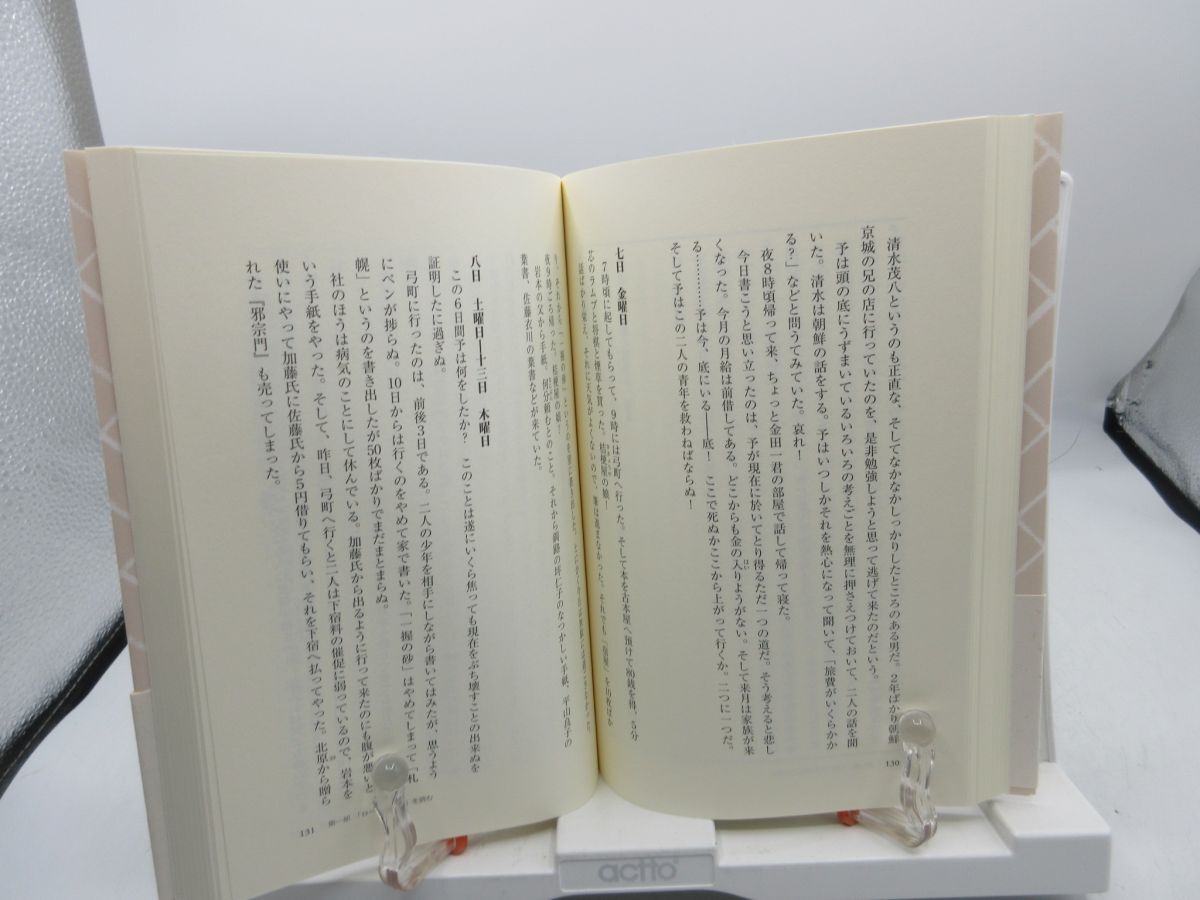 清水茂八というのも正直な、そしてなかなかしっかりしたところのある男だ。2年ばかり朝鮮
京城の兄の店に行っていたのを、是非勉強しようと思って逃げて来たのだという。
予は頭の底にうずまいているいろいろの考えごとを無理に押さえつけておいて、二人の話を聞
いた。清水は朝鮮の話をする。予はいつしかそれを熱心になって聞いて、「旅費がいくらかか
る?」などと問うてみていた。哀れ!
夜8時頃帰って来、ちょっと金田一君の部屋で話して帰って寝た。
今日書こうと思い立ったのは、予が現在に於いてとり得るただ一つの道だ。そう考えると悲し
くなった。今月の月給は前借してある。どこからも金の入りようがない。そして来月は家族が来
る…………予は今、底にいる――底! ここで死ぬかここから上がって行くか。二つに一つだ。
そして予はこの二人の青年を救わねばならぬ!
七日 金曜日
7時頃に起してもらって、9時には弓町へ行った。そして本を古本屋へ預けて80銭を得、5分
芯のラムプと将棋と煙草を買った。桔梗屋の娘!
話ばかり栄え、それに天気がよくないので、筆は進まなかった。それでも「宿屋」を10枚ばか
夜9時ごろ帰った。桔梗屋の娘。
岩本の父から手紙、例分頼むとのこと、それから釧路の坪仁子のなつかしい手紙、平山良子の
葉書、佐藤衣川の葉書などが来ていた。
八日 土曜日―十三日 木曜日
この6日間予は何をしたか? このことは遂にいくら焦っても現在をぶち壊すことの出来ぬを
証明したに過ぎぬ。
弓町に行ったのは、前後3日である。二人の少年を相手にしながら書いてはみたが、思うよう
にペンが捗らぬ。10日からは行くのをやめて家で書いた。「一握の砂」はやめてしまって「札
幌」というのを書き出したが50枚ばかりでまだまとまらぬ。
社のほうは病気のことにして休んでいる。加藤氏から出るように行って来たのにも腹が悪いと
いう手紙をやった。そして、昨日、弓町へ行くと二人は下宿料の催促に弱っているので、岩本を
使いにやって加藤氏に佐藤氏から5円借りてもらい、それを下宿へ払ってやった。北原から贈ら
れた『邪宗門』も売ってしまった。
130
131 第一部 「ロー を読む
actto